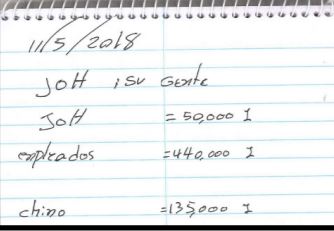 11/5/2018
JOH y su Gente
JOH = 50,000 I
empleados =440,000 I
chino =135,000 I